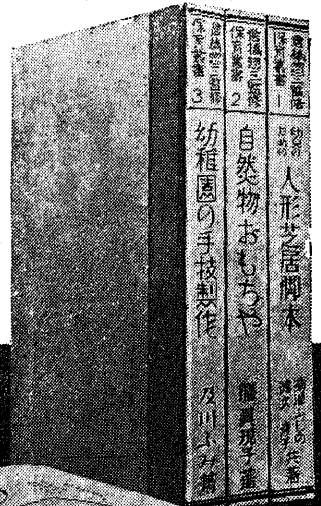 倉橋惣三監修
保育叢書 1
幼児の
ための
人形芝居脚本
倉橋惣三監修
保育叢書 2
自然物おもちや
膳真規子著
倉橋惣三監修
保育叢書 3
幼稚園の手技製作
及川ふみ著